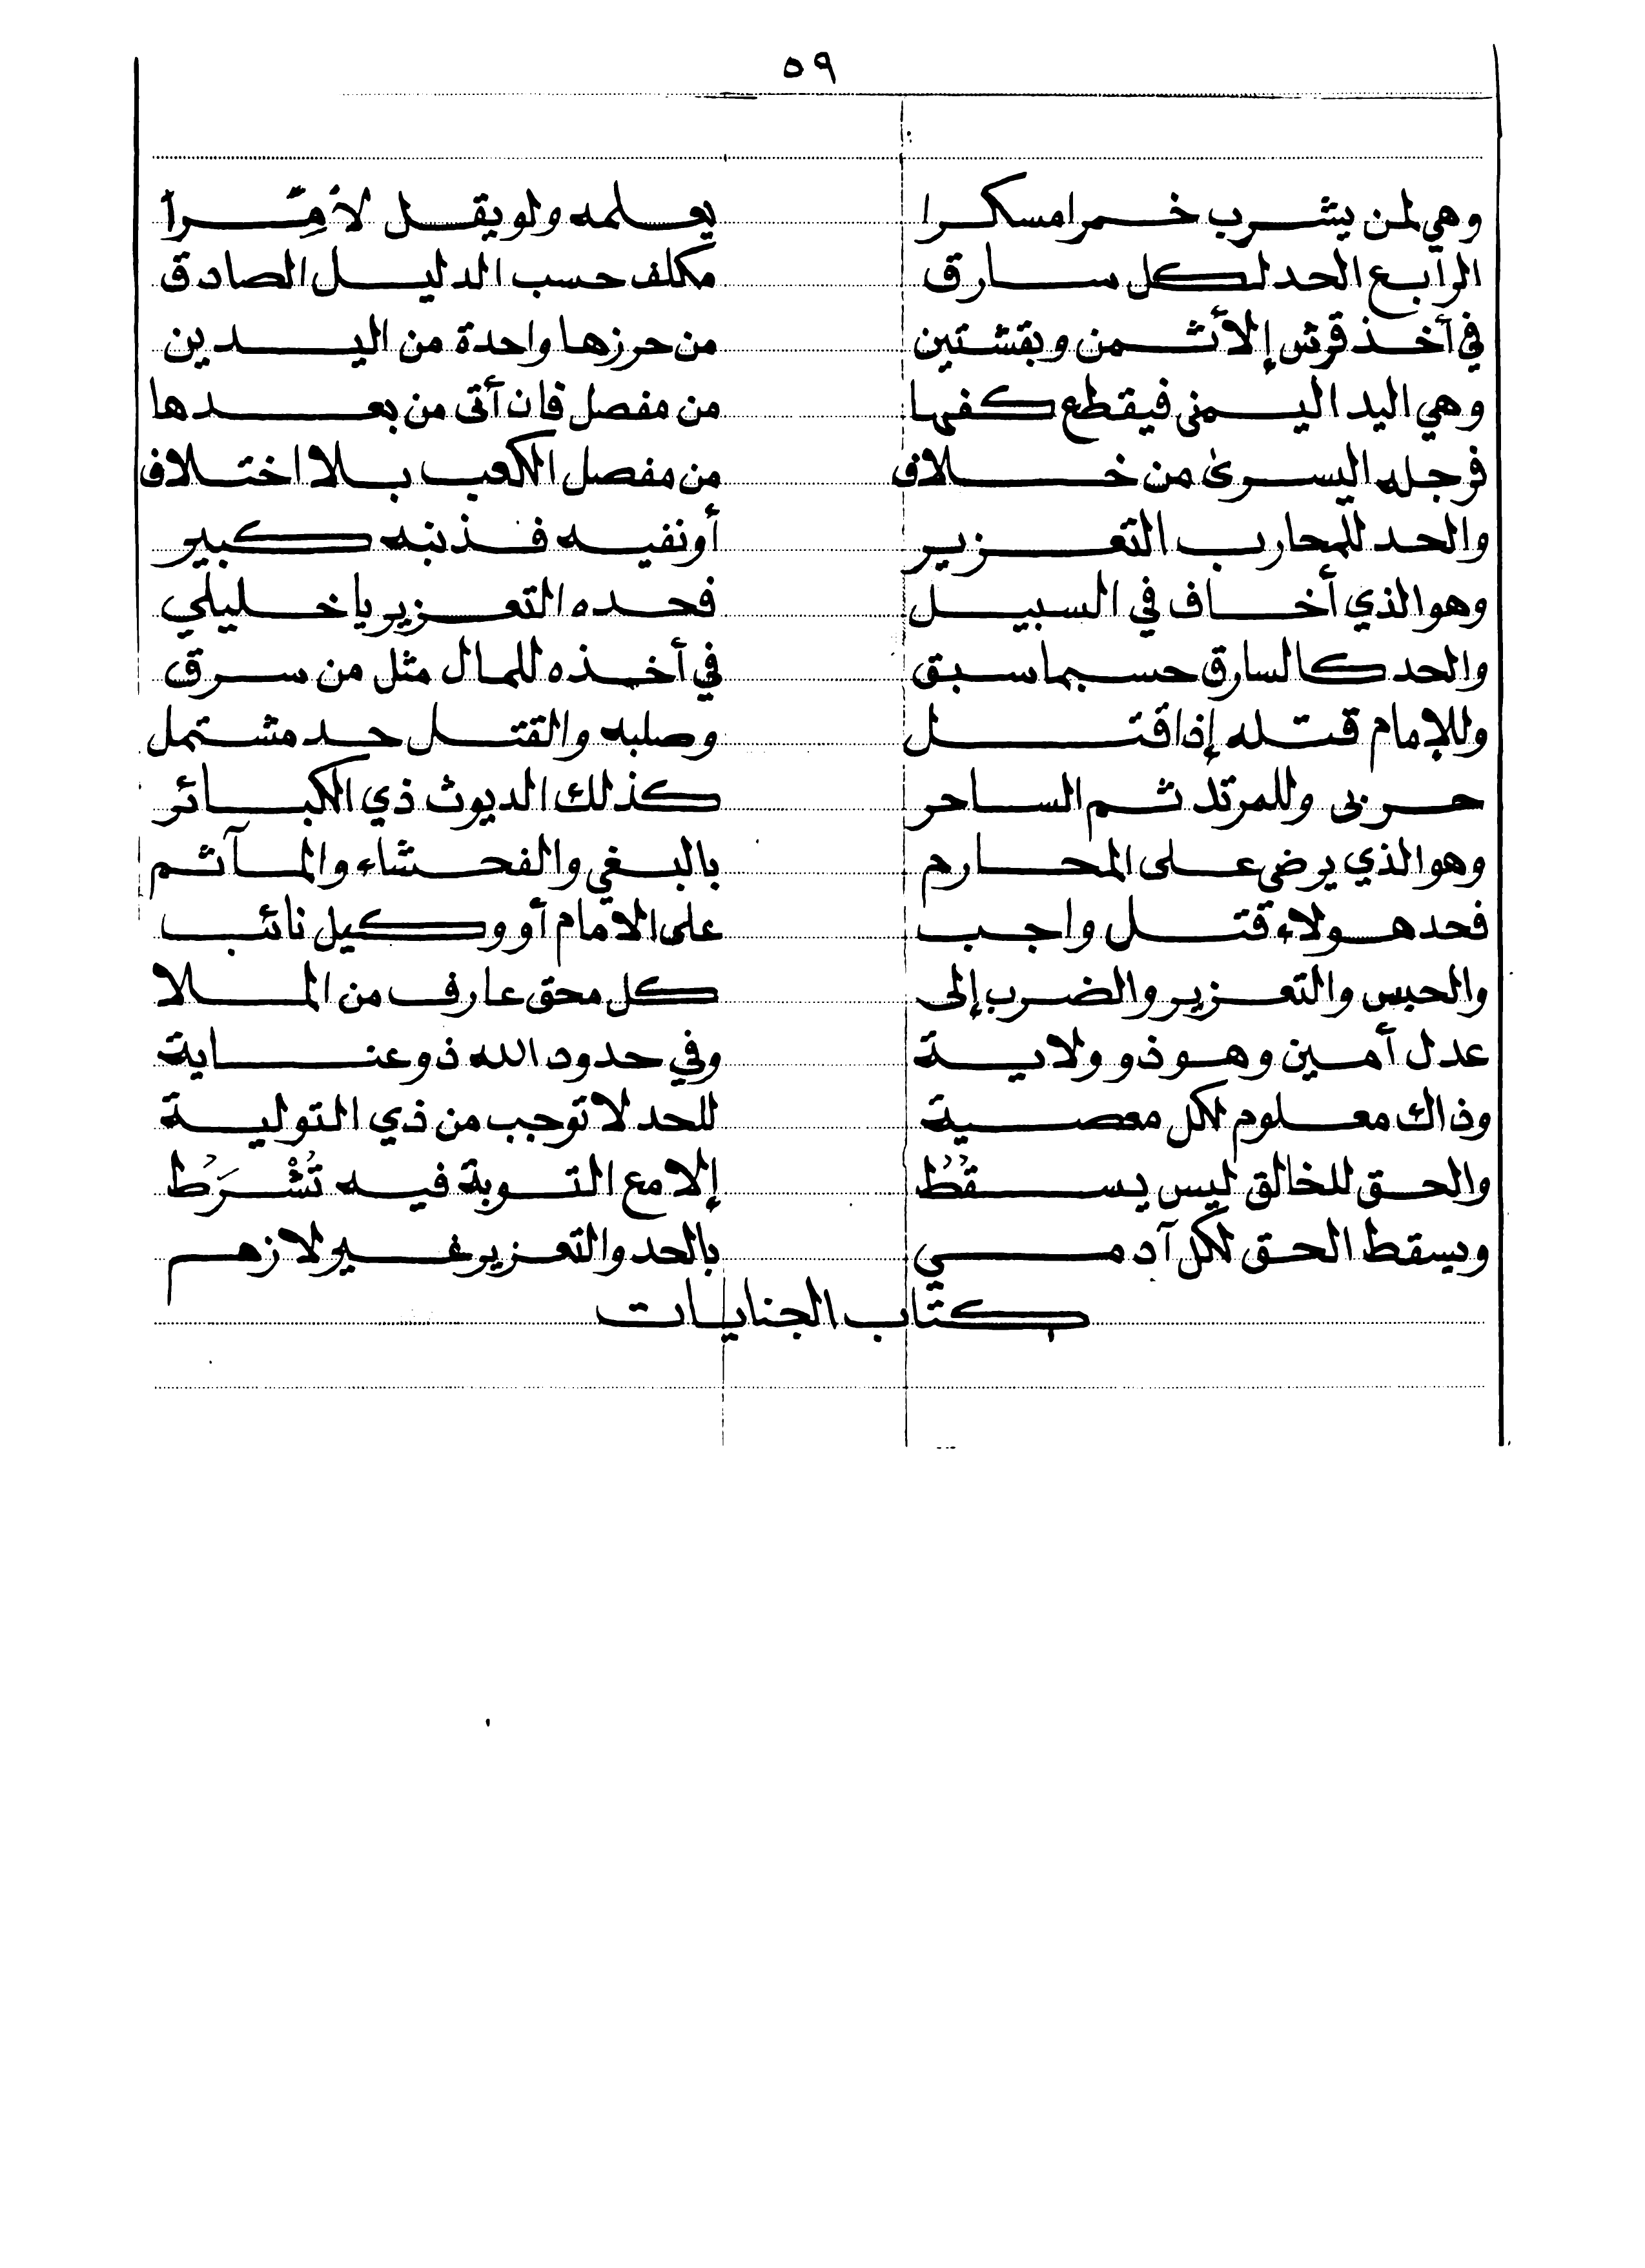 ٥٩
وهي لمن يشرب خمرا مسكرا يعلمه ولو يقل لأمِّرا
الرابع الحد لكل سارق مكلف حسب الدليل الصادق
في أخذ قرش إلا أثمن وبقشتين من حرزها واحدة من اليدين
وهي اليد اليمنى فيقطع كفها من مفصل فان أتى من بعدها
فرجله اليسرى من خلاف من مفصل الكعب بلا اختلاف
والحد للمحارب التعزير أو نفيه فذنبه كبير
وهو الذي أخاف في السبيل فحده التعزير يا خليلي
والحد كالسارق حسبما سبق في أخذه للمال مثل من سرق
وللإمام قتله إذا قتل وصلبه والقتل حد مشتمل
حربى وللمرتد ثم الساحر كذلك الديوث ذي الكبائر
وهو الذي يرضى على المحارم بالبغي والفحشاء والمآثم
فحد هولاء قتل واجب على الامام أو وكيل نائب
والحبس والتعزير والضرب إلى كل محق عارف من الملا
عدل أمين وهو ذو ولاية وفي حدود الله ذو عناية
وذاك معلوم لكل معصية للحد لا توجب من ذي التولية
والحق للخالق ليس يسقُطُ إلا مع التوبة فيه تُشْرَطُ
ويسقط الحق لكل آدمي بالحد والتعزير غير لازم
كتاب الجنايات